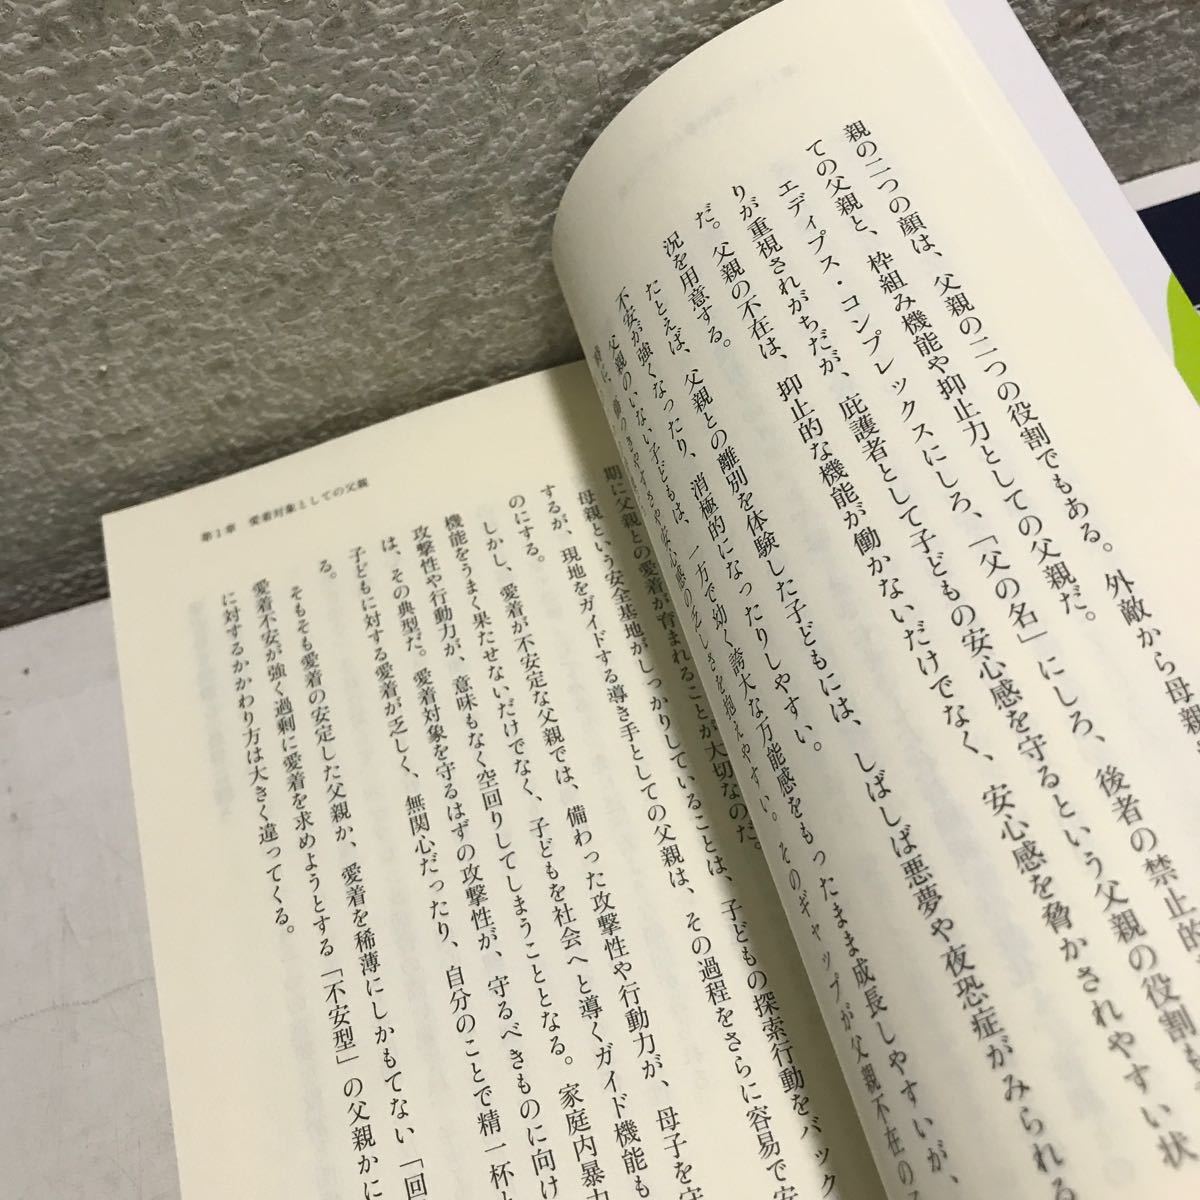 親の二つの顔は、父親の二つの役割でもある。外敵から母親
ての父親と、枠組み機能や抑止力としての父親だ。
エディプス・コンプレックスにしろ、「父の名」にしろ、後者の禁止的
りが重視されがちだが、庇護者として子どもの安心感を守るという父親の役割も
だ。父親の不在は、抑止的な機能が働かないだけでなく、安心感を脅かされやすい状
況を用意する。
たとえば、父親との離別を体験した子どもには、しばしば悪夢や夜恐症がみられる
不安が強くなったり、消極的になったりしやすい。
父親のいない子どもは、一方で幼く誇大な万能感をもったまま成長しやすいが、
傷つきやすさや安心感の乏しさを抱えやすい。そのギャップが父親不在の
期に父親との愛着が育まれることが大切なのだ。
母親という安全基地がしっかりしていることは、子どもの探索行動をバック
するが、現地をガイドする導き手としての父親は、その過程をさらに容易で安
のにする。
しかし、愛着が不安定な父親では、備わった攻撃性や行動力が、母子を守
機能をうまく果たせないだけでなく、子どもを社会へと導くガイド機能も
攻撃性や行動力が、意味もなく空回りしてしまうこととなる。家庭内暴力
は、その典型だ。愛着対象を守るはずの攻撃性が、守るべきものに向け
子どもに対する愛着が乏しく、無関心だったり、自分のことで精一杯
る。
そもそも愛着の安定した父親か、愛着を稀薄にしかもてない「回
愛着不安が強く過剰に愛着を求めようとする「不安型」の父親かに
に対するかかわり方は大きく違ってくる。
第1章 愛着対象としての父親